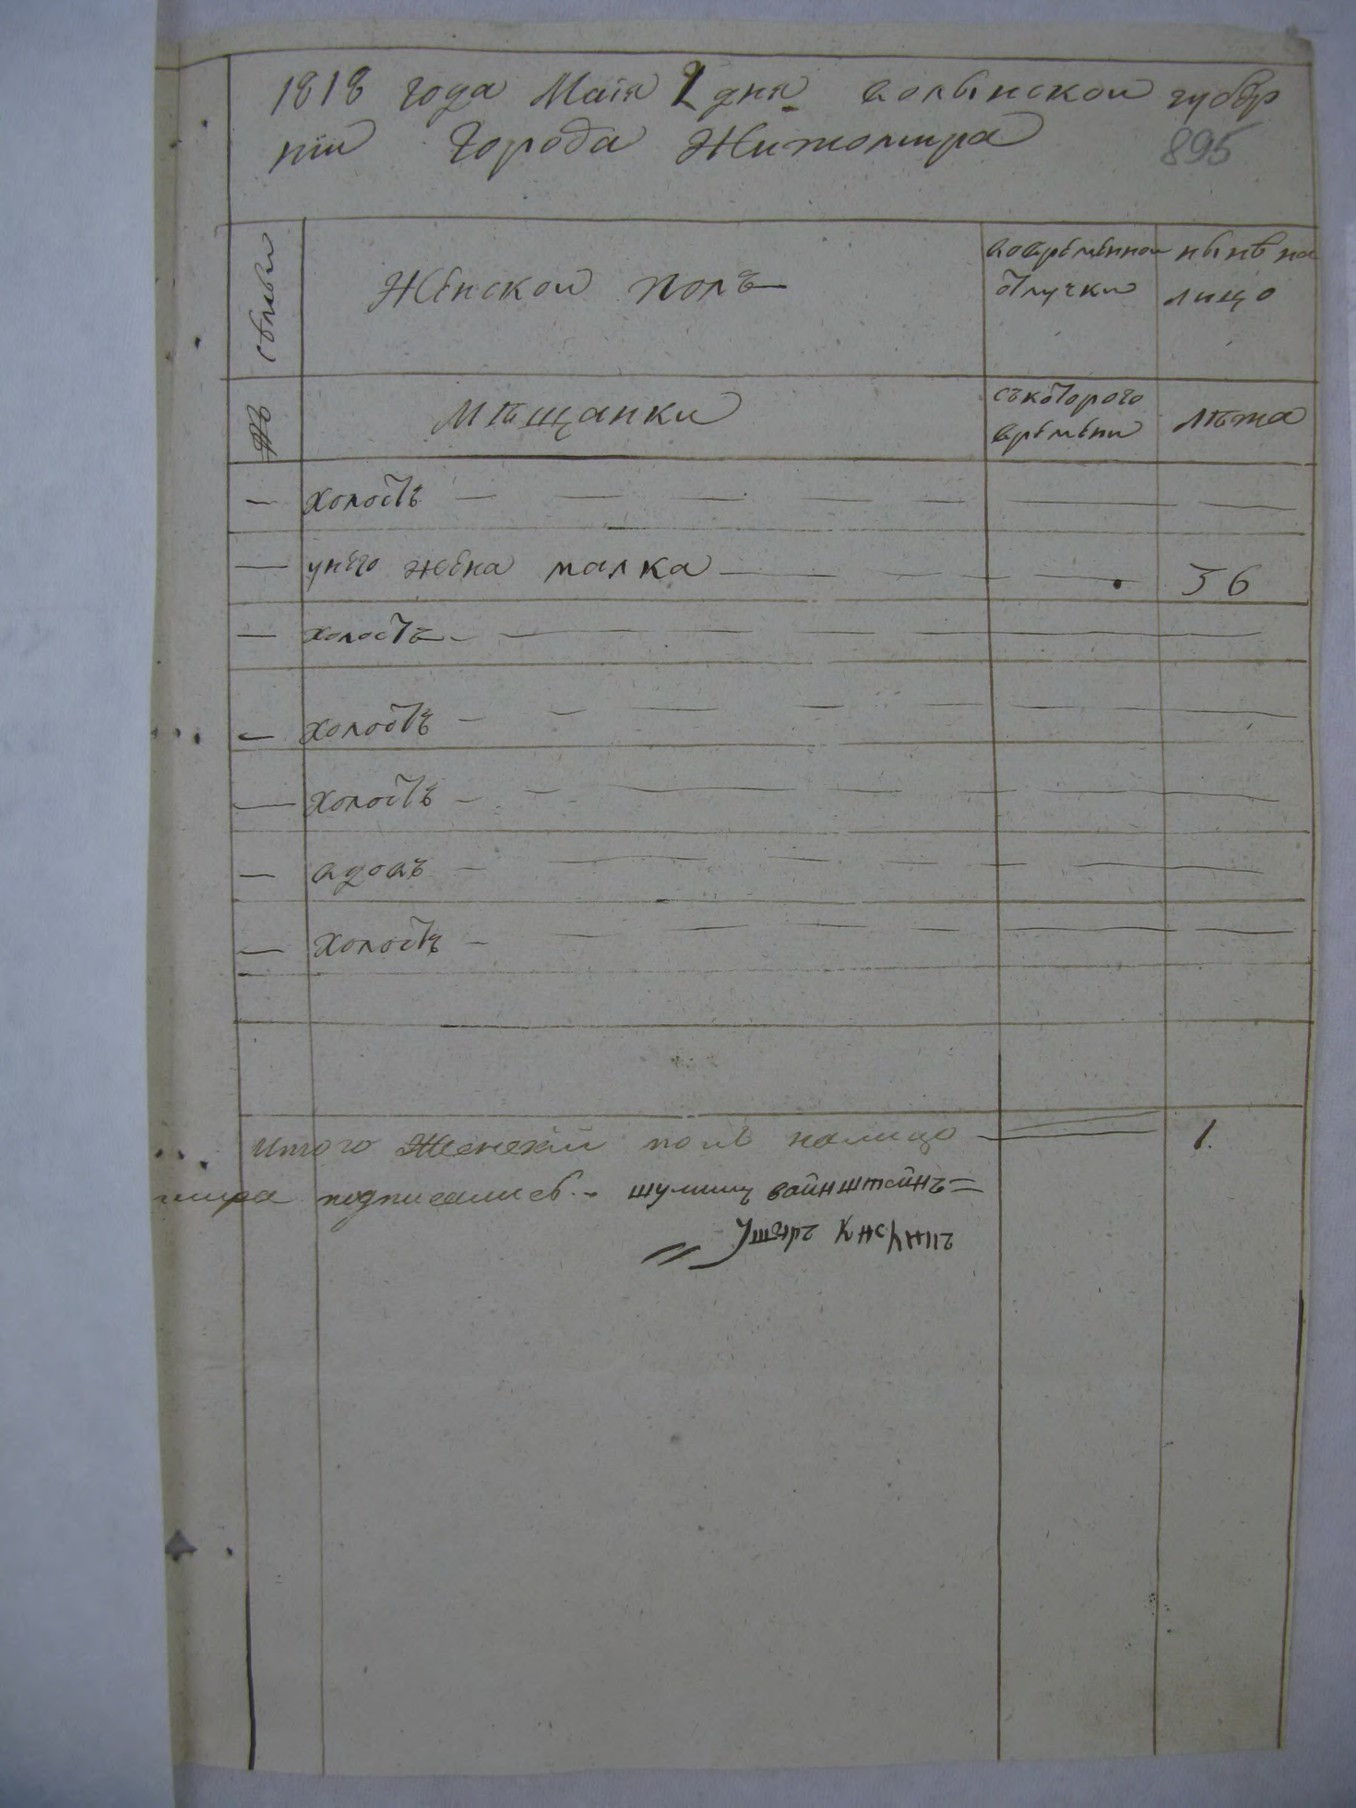 1818 года Маія 2 дня волынской губер
ніи Города Житомира
895
семьи
Женской полъ
вовременной
отлучки
ныне на
лицо
№
Мѣщанки
съкоторого
времени
лѣта
— холостъ — — — — — — —
— унего жена малка — — — — — 56
— холостъ — — — — — — —
— холостъ — — — — — — —
— холостъ — — — — — — —
— вдовъ — — — — — — —
— холостъ — — — — — — —
Итого Женскій полъ налицо 1.
мира подписались шулим вайнштейнъ